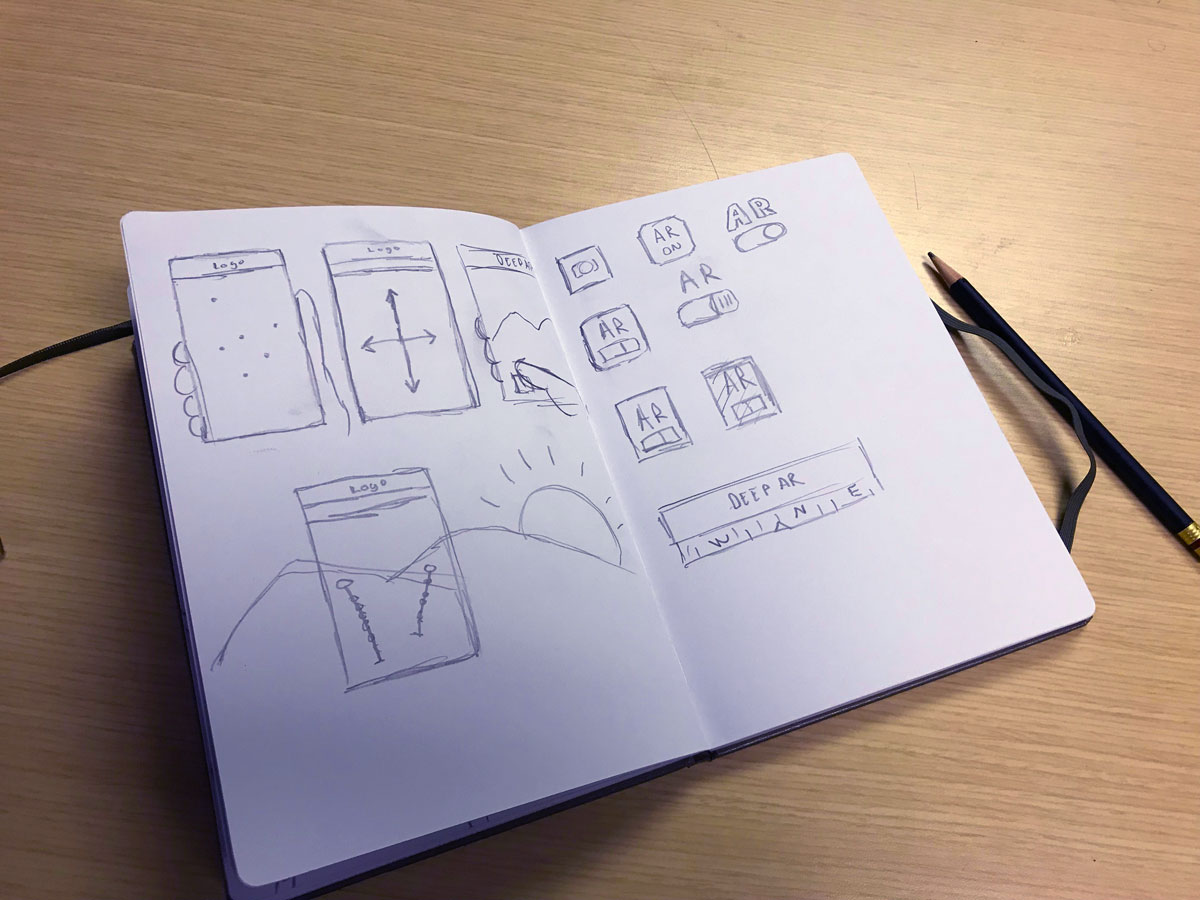 Logo
Logo
DEEP AR
Logo
AR
ON
AR
AR
AR
AR
AR
DEEP AR
W N E